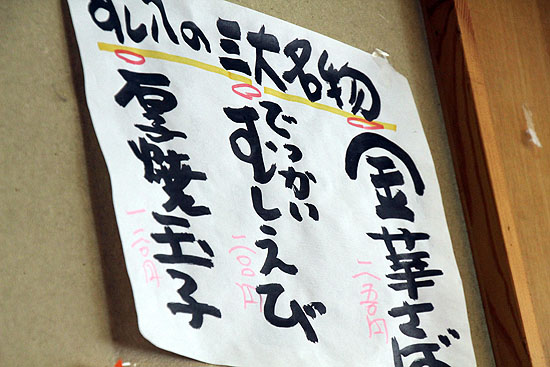 すし八の三大名物
金華さば
二五〇円
でっかい
むしえび
二〇〇円
厚焼玉子